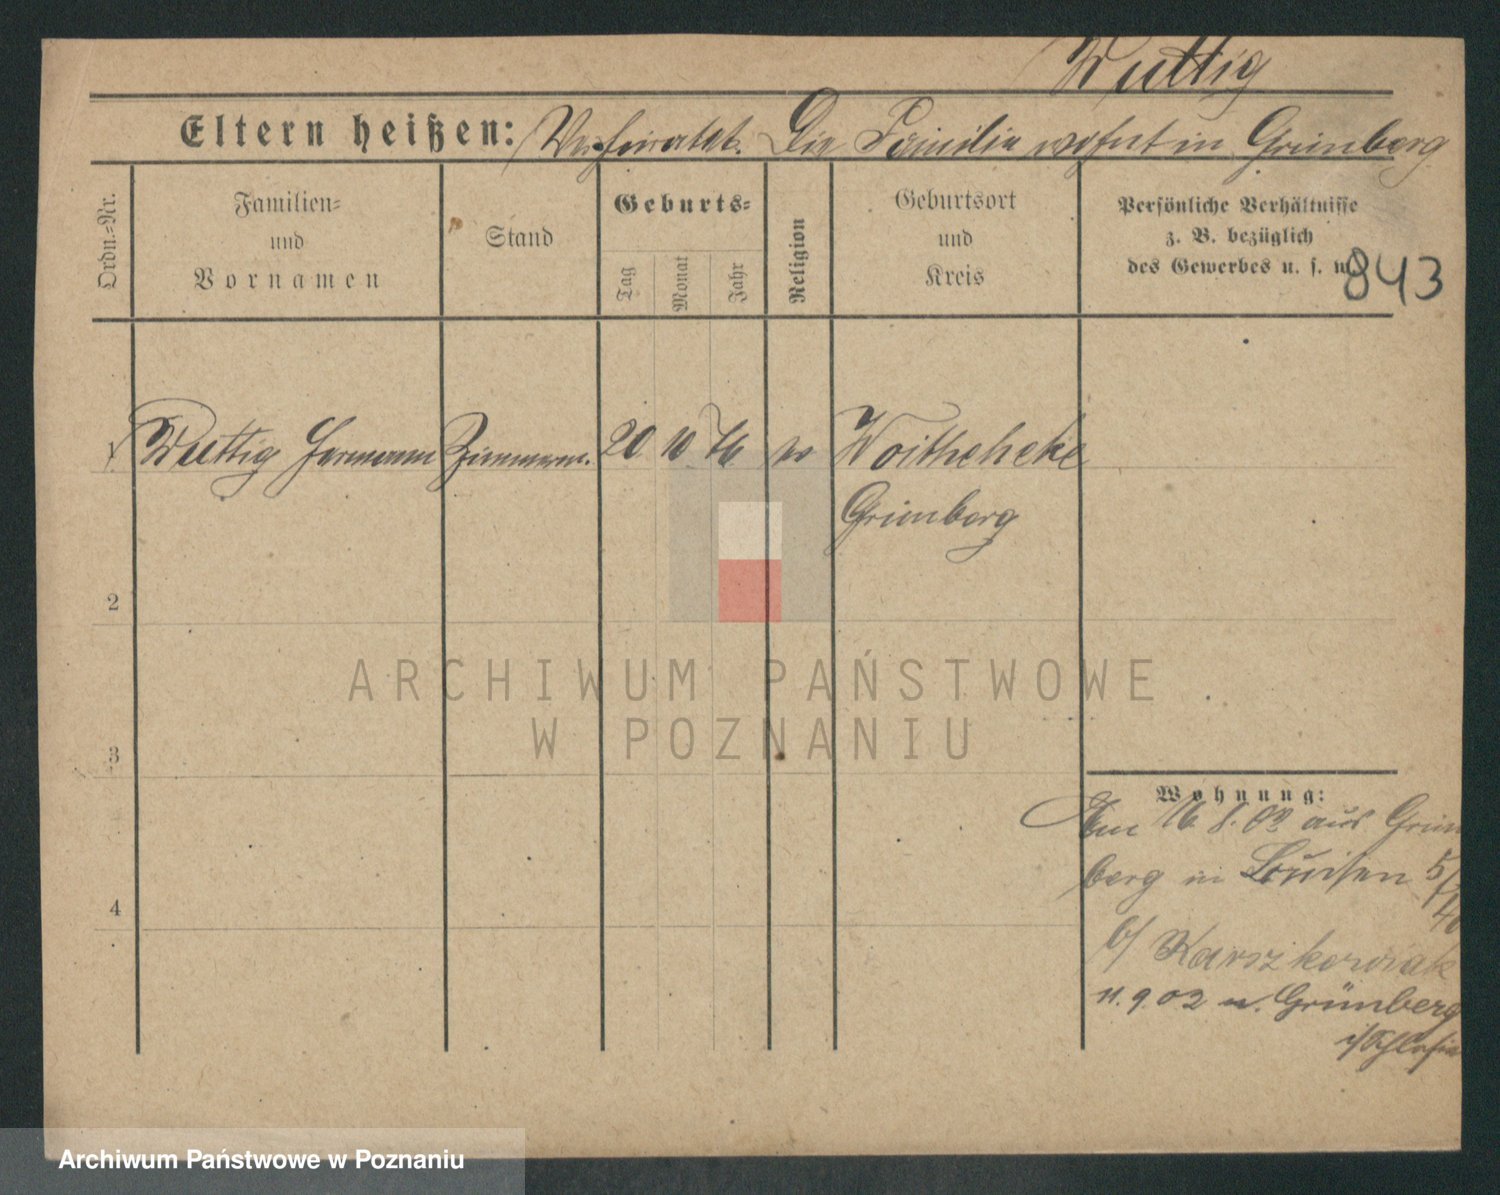 Wuttig
Eltern heißen: Verheiratet. Die Familie wohnt in Grünberg
Ordn.-Nr.
Familien-
und
Vornamen
Stand
Geburts-
Tag
Monat
Jahr
Religion
Geburtsort
und
Kreis
Persönliche Verhältnisse
z. B. bezüglich
des Gewerbes u. s. w.
843
1 Wuttig Hermann Zimmerm. 20 10 76 Woitscheke
Grünberg
2
ARCHIWUM PAŃSTWOWE
W POZNANIU
3
Wohnung:
16 8. 02 aus Grün
berg in Louisen 5/
4
b/ Karszkowiak
11. 9. 02 n. Grünberg
i/Schlesien
Archiwum Państwowe w Poznaniu